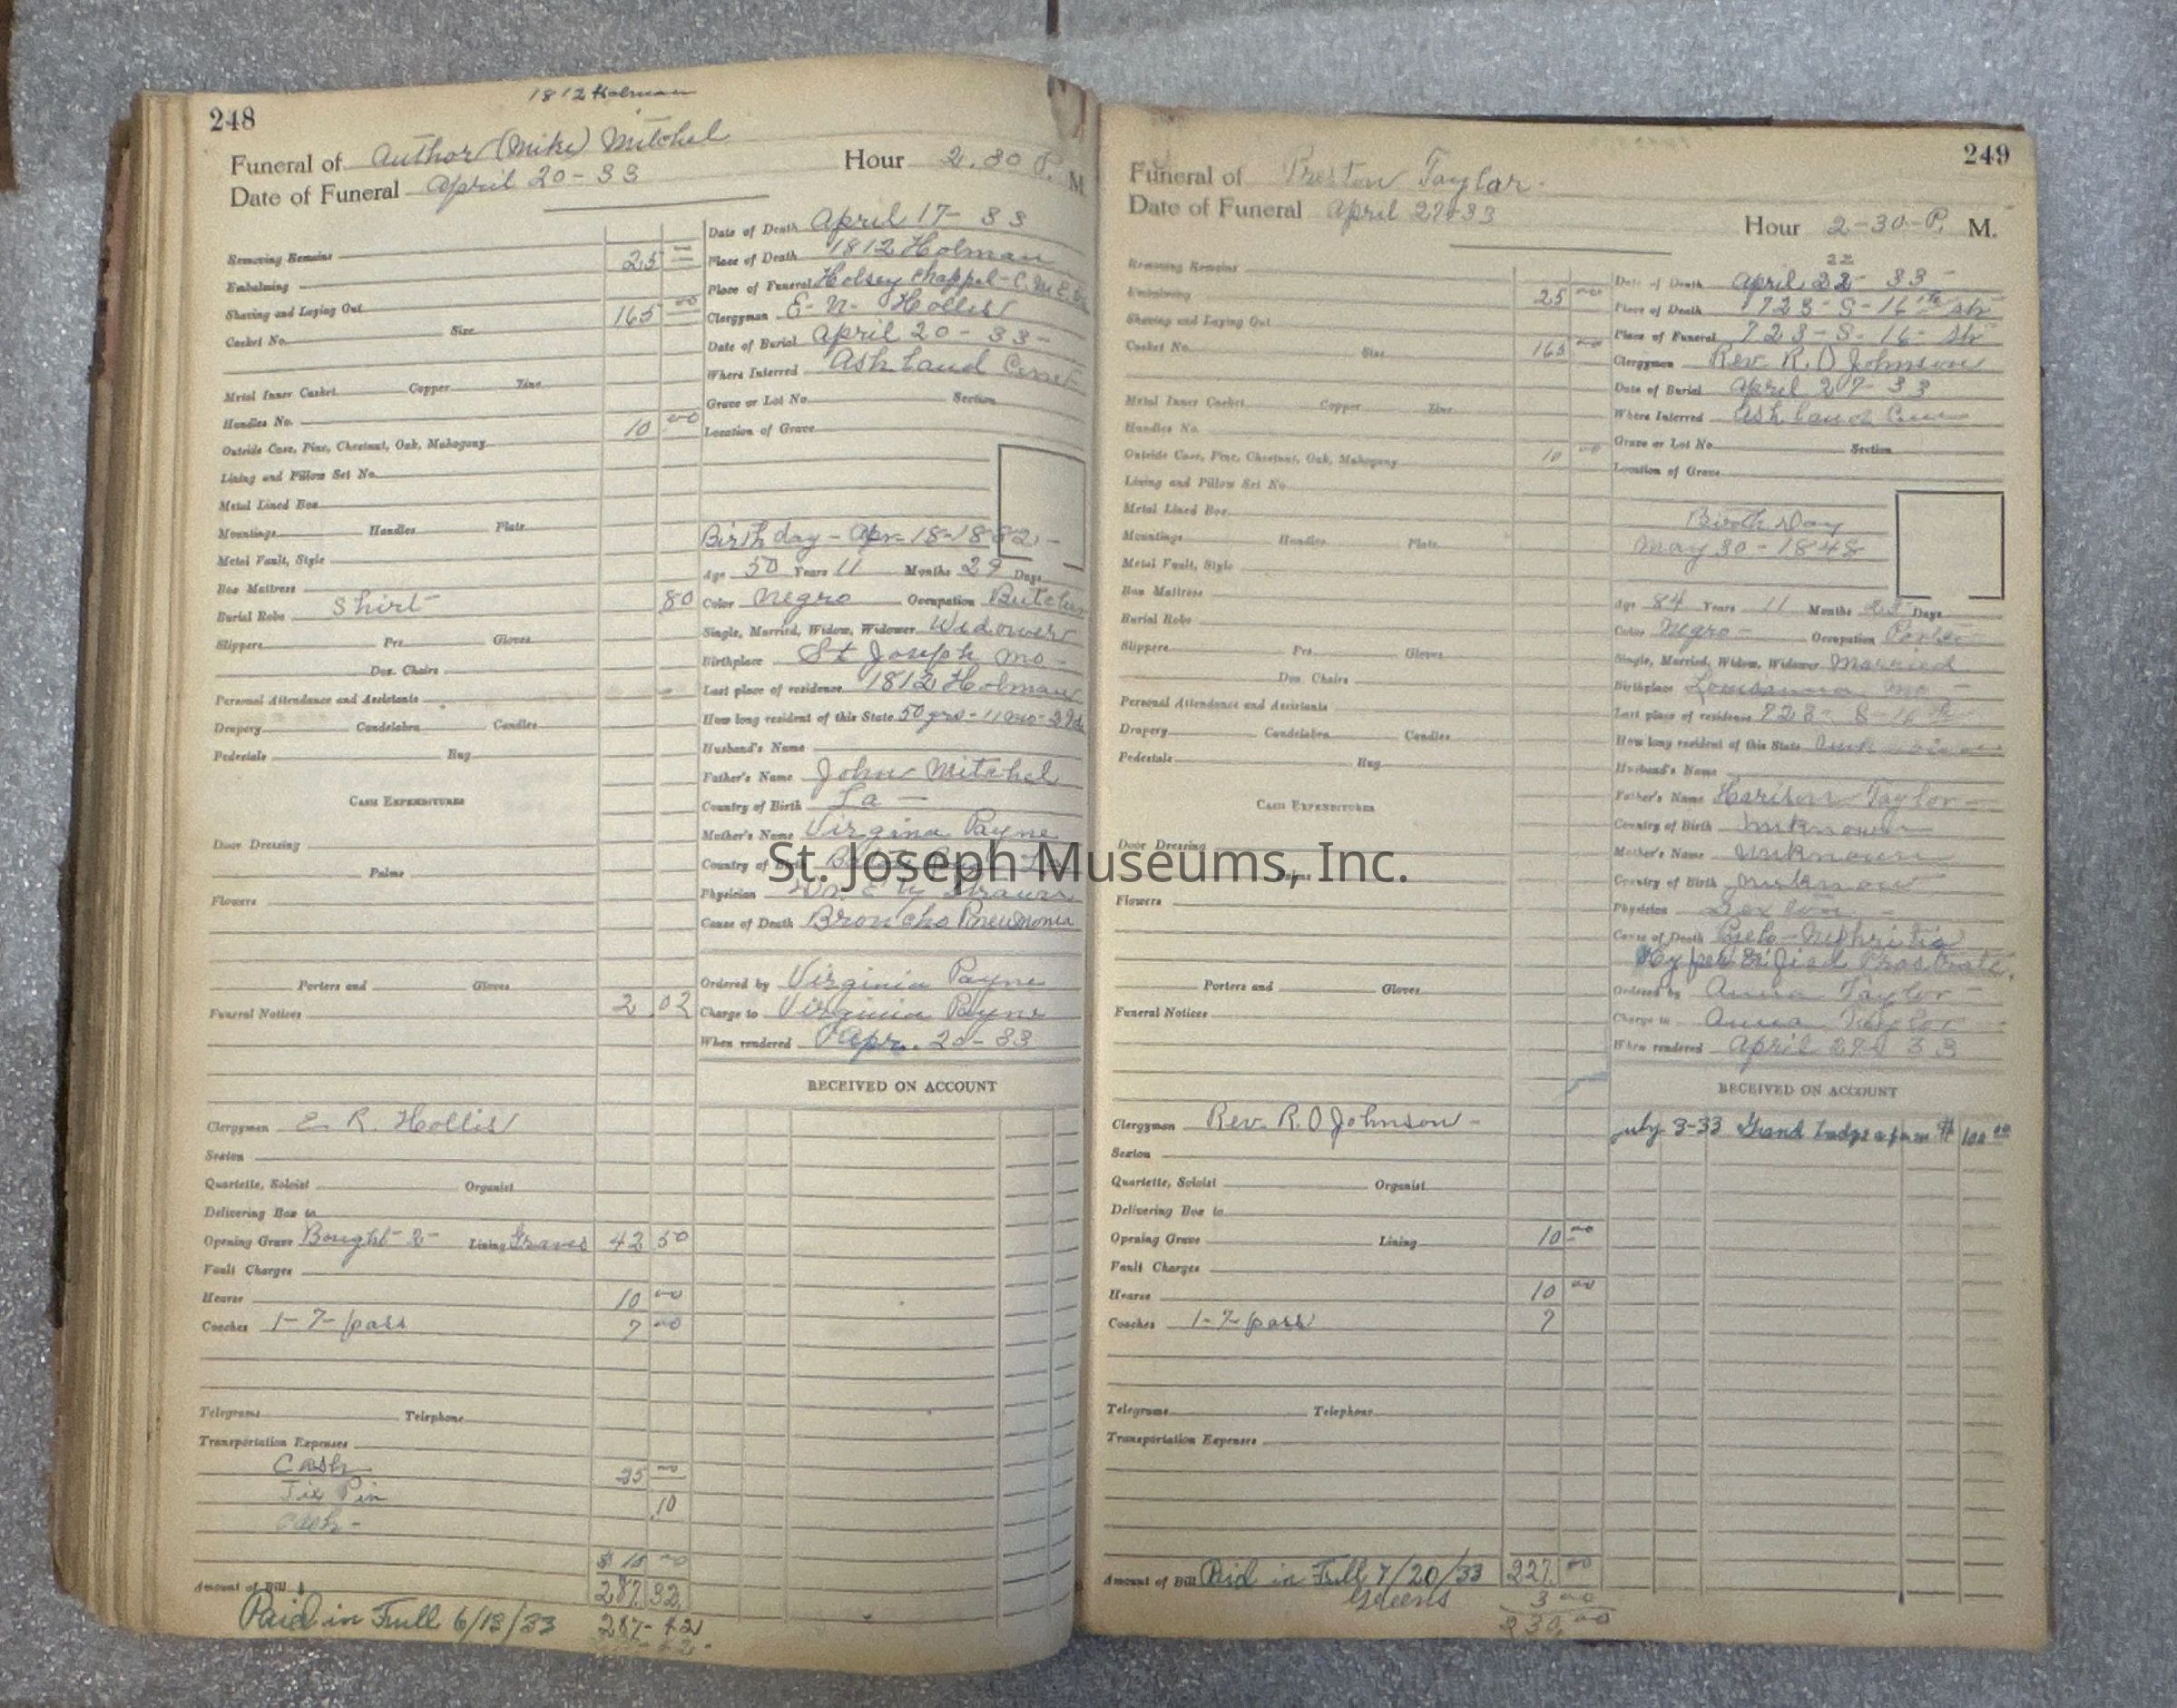 248
1812 Holman
Funeral of Author (Mike) Mitchel
Date of Funeral April 20-33
Hour 2.30 P. M.
Removing Remains
Embalming 25 00
Shaving and Laying Out
Casket No. Size 165 00
Metal Inner Casket Copper Zinc
Handles No.
Outside Case, Pine, Chestnut, Oak, Mahogany 10 00
Lining and Pillow Set No.
Metal Lined Box
Mountings Handles Plate
Metal Vault, Style
Box Mattress
Burial Robe Shirt 80
Slippers Prs. Gloves
Doz. Chairs
Personal Attendance and Assistants
Drapery Candelabra Candles
Pedestals Rug
CASH EXPENDITURES
Door Dressing
Palms
Flowers
Porters and Gloves
Funeral Notices 2.02
Clergyman E. R. Hollis
Sexton
Quartette, Soloist Organist
Delivering Box to
Opening Grave Bought 2- Lining Graves 42 50
Vault Charges
Hearse 10 00
Coaches 1-7-pass 7 00
Telegrams Telephone
Transportation Expenses
Cash 25 00
Tie Pin .10
Cash -
$ 10 00
Amount of Bill 287.32
Paid in Full 6/13/33 287-42
Date of Death April 17- 33
Place of Death 1812 Holman
Place of Funeral Holsey Chappel - C.M.E.
Clergyman E- N- Hollis
Date of Burial April 20-33-
Where Interred Ashland Cemt
Grave or Lot No. Section
Location of Grave
Birthday - Apr- 18-1882-
Age 50 Years 11 Months 29 Days
Color Negro Occupation Butcher
Single, Married, Widow, Widower Widower
Birthplace St Joseph Mo-
Last place of residence 1812 Holman
How long resident of this State 50 yrs-11 mo-29d
Husband's Name
Father's Name John Mitchel
Country of Birth La -
Mother's Name Virgina Payne
Country of Birth
Physician Dr.
Cause of Death Broncho Pneumonia
Ordered by Virginia Payne
Charge to Virginia Payne
When rendered Apr. 20-33
RECEIVED ON ACCOUNT
249
Funeral of Preston Taylor-
Date of Funeral April 27-33
Hour 2-30-P. M.
Removing Remains
Embalming 25 00
Shaving and Laying Out
Casket No. Size 165 00
Metal Inner Casket Copper Zinc
Handles No.
Outside Case, Pine, Chestnut, Oak, Mahogany 10 00
Lining and Pillow Set No.
Metal Lined Box
Mountings Handles Plate
Metal Vault, Style
Box Mattress
Burial Robe
Slippers Prs. Gloves
Doz. Chairs
Personal Attendance and Assistants
Drapery Candelabra Candles
Pedestals Rug
CASH EXPENDITURES
Door Dressing
Flowers
Porters and Gloves
Funeral Notices
Clergyman Rev. R. O Johnson-
Sexton
Quartette, Soloist Organist
Delivering Box to
Opening Grave Lining 10 00
Vault Charges
Hearse 10 00
Coaches 1-7-pass 7
Telegrams Telephone
Transportation Expenses
Amount of Bill Paid in Full 7/20/33 227.00
Greens 3 00
230 00
22
Date of Death April 22- 33-
Place of Death 723-S-16th str
Place of Funeral 723-S-16- str
Clergyman Rev. R. O Johnson
Date of Burial April 27-33
Where Interred Ashland Cem
Grave or Lot No. Section
Location of Grave
Birth Day
May 30-1848
Age 84 Years 11 Months Days
Color Negro- Occupation Porter
Single, Married, Widow, Widower Married
Birthplace Louisanna Mo-
Last place of residence 723-S-16th
How long resident of this State
Husband's Name
Father's Name Harison Taylor-
Country of Birth Unknown
Mother's Name Unknown
Country of Birth Unknown
Physician
Cause of Death
Ordered by Anna Taylor-
Charge to Anna Taylor
When rendered April 27- 33
RECEIVED ON ACCOUNT
July 3-33 Grand Lodge $ 100 00
St. Joseph Museums, Inc.